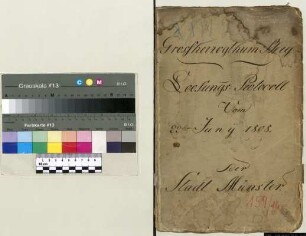 Grauskala #13
C M
B.I.G.
Farbkarte #13
B.I.G.
Großherzogthum Berg
Loosungs Protocoll
Vom
Juny 1808.
Für
Stadt Münster